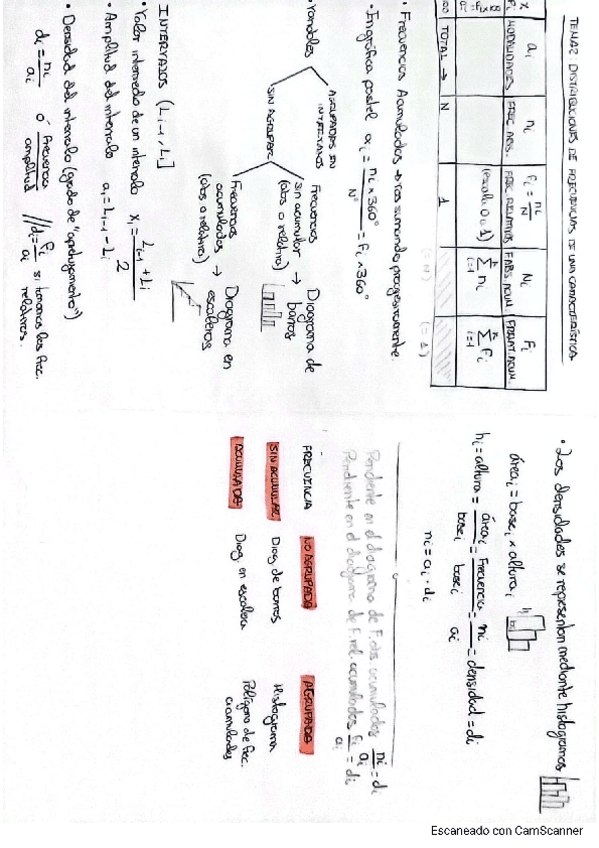 TEMA 2: DISTRIBUCIONES DE FRECUENCIAS DE UNA CARACTERÍSTICA
X ai ni fi = ni/N Ni Fi
MODALIDADES FREC. ABS. FREC. RELATIVAS F.ABS. ACUM.
(escala 0 a 1) Σ ni Σ fi
TOTAL → N 1
(= N) (= 1)
• Frecuencias Acumuladas → vas sumando progresivamente.
• En gráfica pastel αi = ni x 360° / Nº = fi x 360°
SIN AGRUPAR
AGRUPADAS EN INTERVALOS
Frecuencias sin acumular (abs o relativa) → Diagrama de barras
Frecuencias acumuladas (abs o relativa) → Diagrama en escaleras
INTERVALOS (Li-1, Li]
• Valor intermedio de un intervalo xi = Li-1 + Li / 2
• Amplitud del intervalo ai = Li-1 - Li
• Densidad del intervalo (grado de "apelujamiento")
di = ni/ai ó Frecuencia/amplitud // di = fi/ai si tenemos las frec. relativas.
• Las densidades se representan mediante histogramas
áreai = basei x alturai
hi = altura = áreai/basei = Frecuencia/basei = ni/ai = densidad = di
ni = ai · di
Pendiente en el diagrama de F. abs. acumuladas ni/ai = di
Pendiente en el diagrama de F. rel. acumuladas fi/ai = di
FRECUENCIA NO AGRUPADA AGRUPADA
SIN ACUMULAR Diag de barras Histograma
ACUMULADA Diag en escalera Polígono de frec. acumuladas
Escaneado con CamScanner